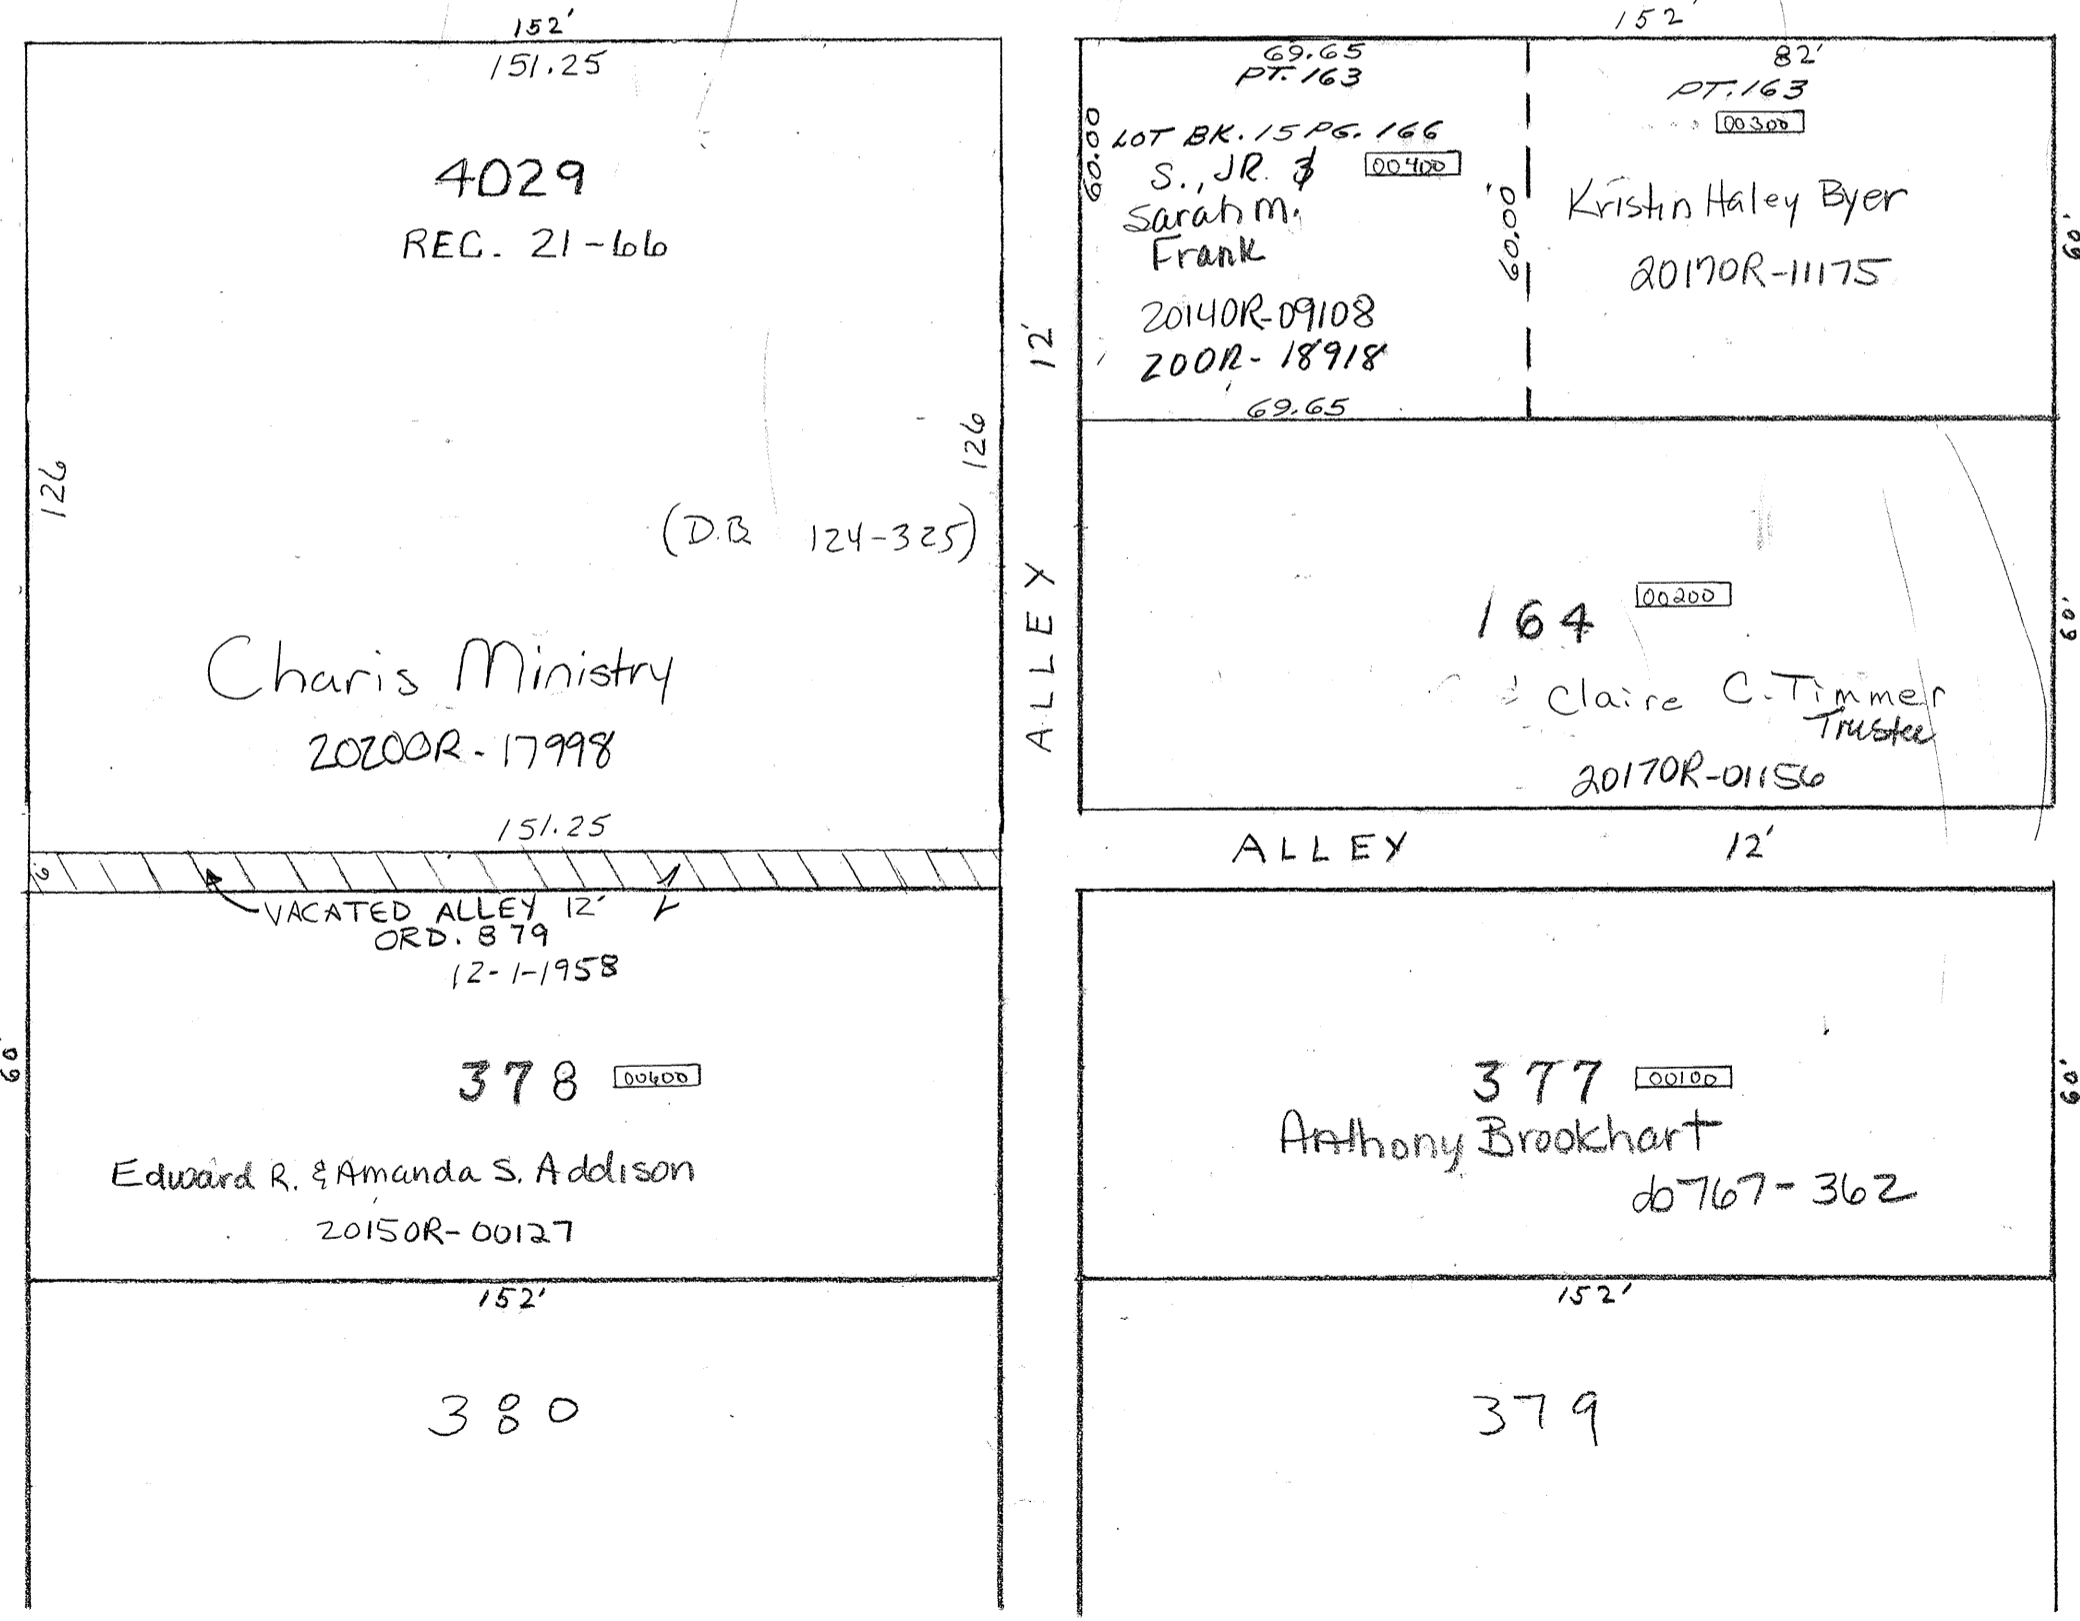 152'
151.25
4029
REC. 21-66
126
126
(D.B. 124-325)
Charis Ministry
20200R-17998
151.25
6'
VACATED ALLEY 12'
ORD. 879
12-1-1958
60'
378 00600
Edward R. & Amanda S. Addison
20150R-00127
152'
380
12'
ALLEY
152'
69.65
PT. 163
60.00
LOT BK. 15 PG. 166
S., JR. & 00400
Sarah M.
Frank
20140R-09108
200R-18918
69.65
60.00'
82'
PT. 163
00300
Kristin Haley Byer
20170R-11175
60'
164 00200
Claire C. Timmer
Trustee
20170R-01156
60'
ALLEY 12'
377 00100
Anthony Brookhart
db767-362
60'
152'
379